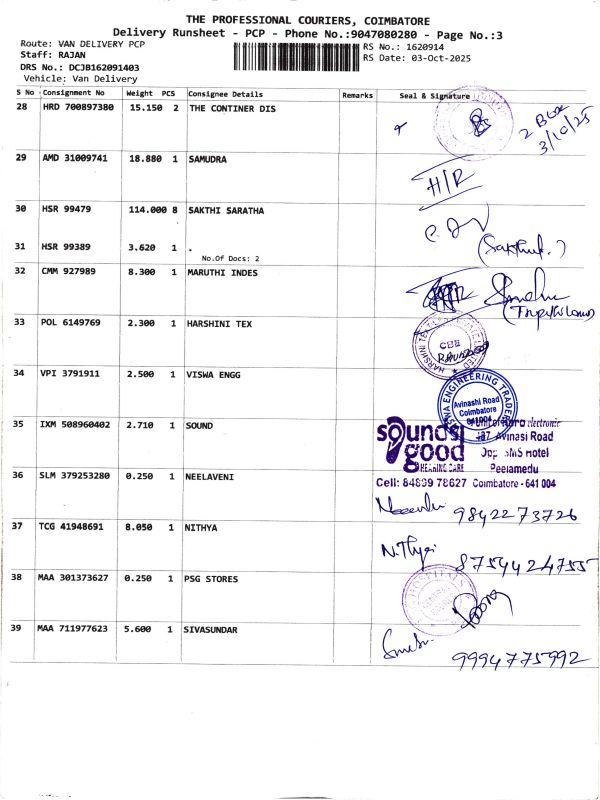 THE PROFESSIONAL COURIERS, COIMBATORE
Delivery Runsheet - PCP - Phone No.:9047080280 - Page No.:3
Route: VAN DELIVERY PCP
Staff: RAJAN
DRS No.: DCJB162091403
Vehicle: Van Delivery
RS No.: 1620914
RS Date: 03-Oct-2025
S No Consignment No Weight PCS Consignee Details Remarks Seal & Signature
28 HRD 700897380 15.150 2 THE CONTINER DIS
2 Box
3/10/25
29 AMD 31009741 18.880 1 SAMUDRA
H/R
30 HSR 99479 114.000 8 SAKTHI SARATHA
31 HSR 99389 3.620 1 .
No.Of Docs: 2
32 CMM 927989 8.300 1 MARUTHI INDES
33 POL 6149769 2.300 1 HARSHINI TEX
HARSHINI TEX
CBE
34 VPI 3791911 2.500 1 VISWA ENGG
ENGINEERING TRADERS
Avinashi Road
Coimbatore
641004
35 IXM 508960402 2.710 1 SOUND
sounds good
HEARING CARE
electronic
Avinasi Road
Opp. SMS Hotel
Peelamedu
Cell: 84899 78627 Coimbatore - 641 004
36 SLM 379253280 0.250 1 NEELAVENI
9842273726
37 TCG 41948691 8.050 1 NITHYA
N.Thyi 8754424755
38 MAA 301373627 0.250 1 PSG STORES
HOSPITALS
39 MAA 711977623 5.600 1 SIVASUNDAR
9994775992